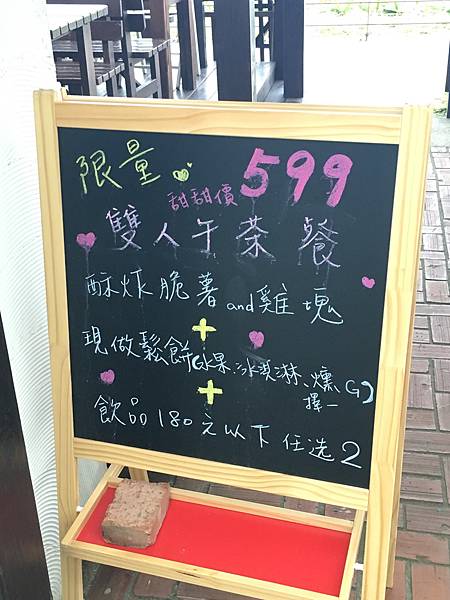 限量 甜甜價 599
雙人午茶餐
酥炸脆薯and雞塊
+
現做鬆餅(水果、冰淇淋、燻G)
擇一
+
飲品180元以下任选2